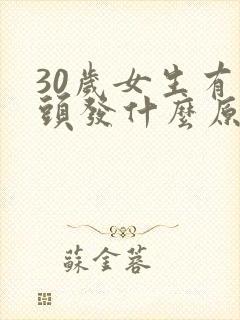 30歲女生有
頭發什麼原
蘇金蓉